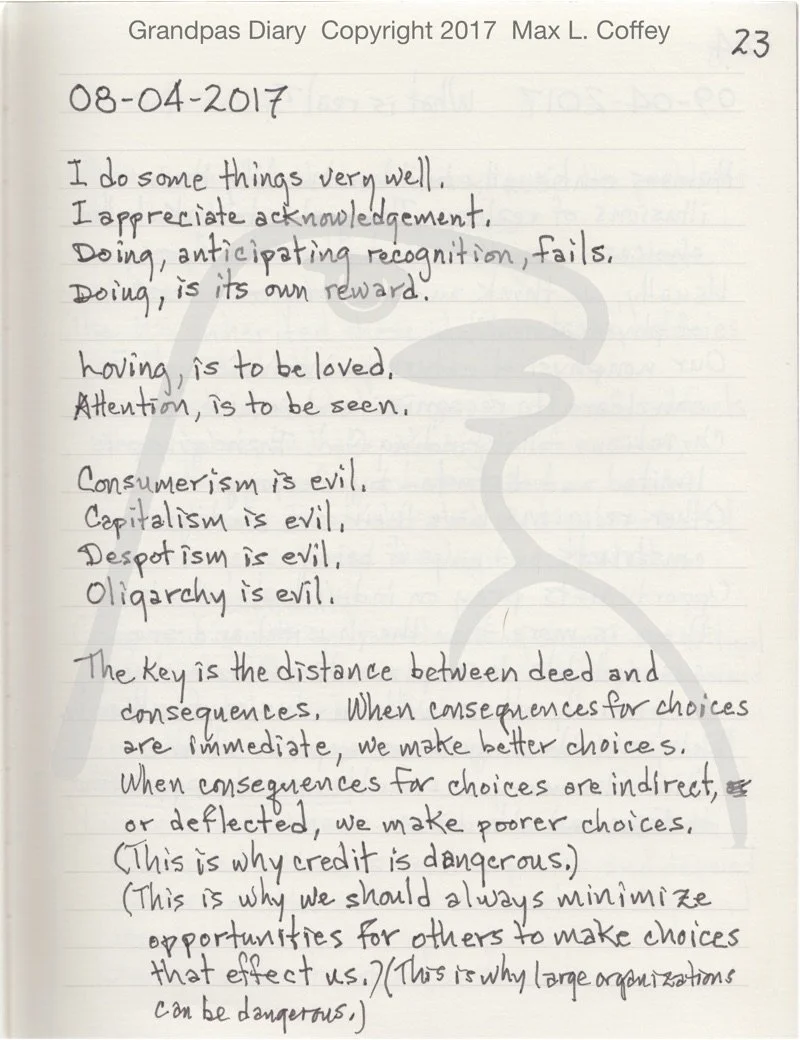 Grandpas Diary Copyright 2017 Max L. Coffey
23
08-04-2017
I do some things very well.
I appreciate acknowledgement.
Doing, anticipating recognition, fails.
Doing, is its own reward.
Loving, is to be loved.
Attention, is to be seen.
Consumerism is evil.
Capitalism is evil.
Despotism is evil.
Oligarchy is evil.
The key is the distance between deed and
consequences. When consequences for choices
are immediate, we make better choices.
When consequences for choices are indirect,
or deflected, we make poorer choices.
(This is why credit is dangerous.)
(This is why we should always minimize
opportunities for others to make choices
that effect us.) (This is why large organizations
can be dangerous.)